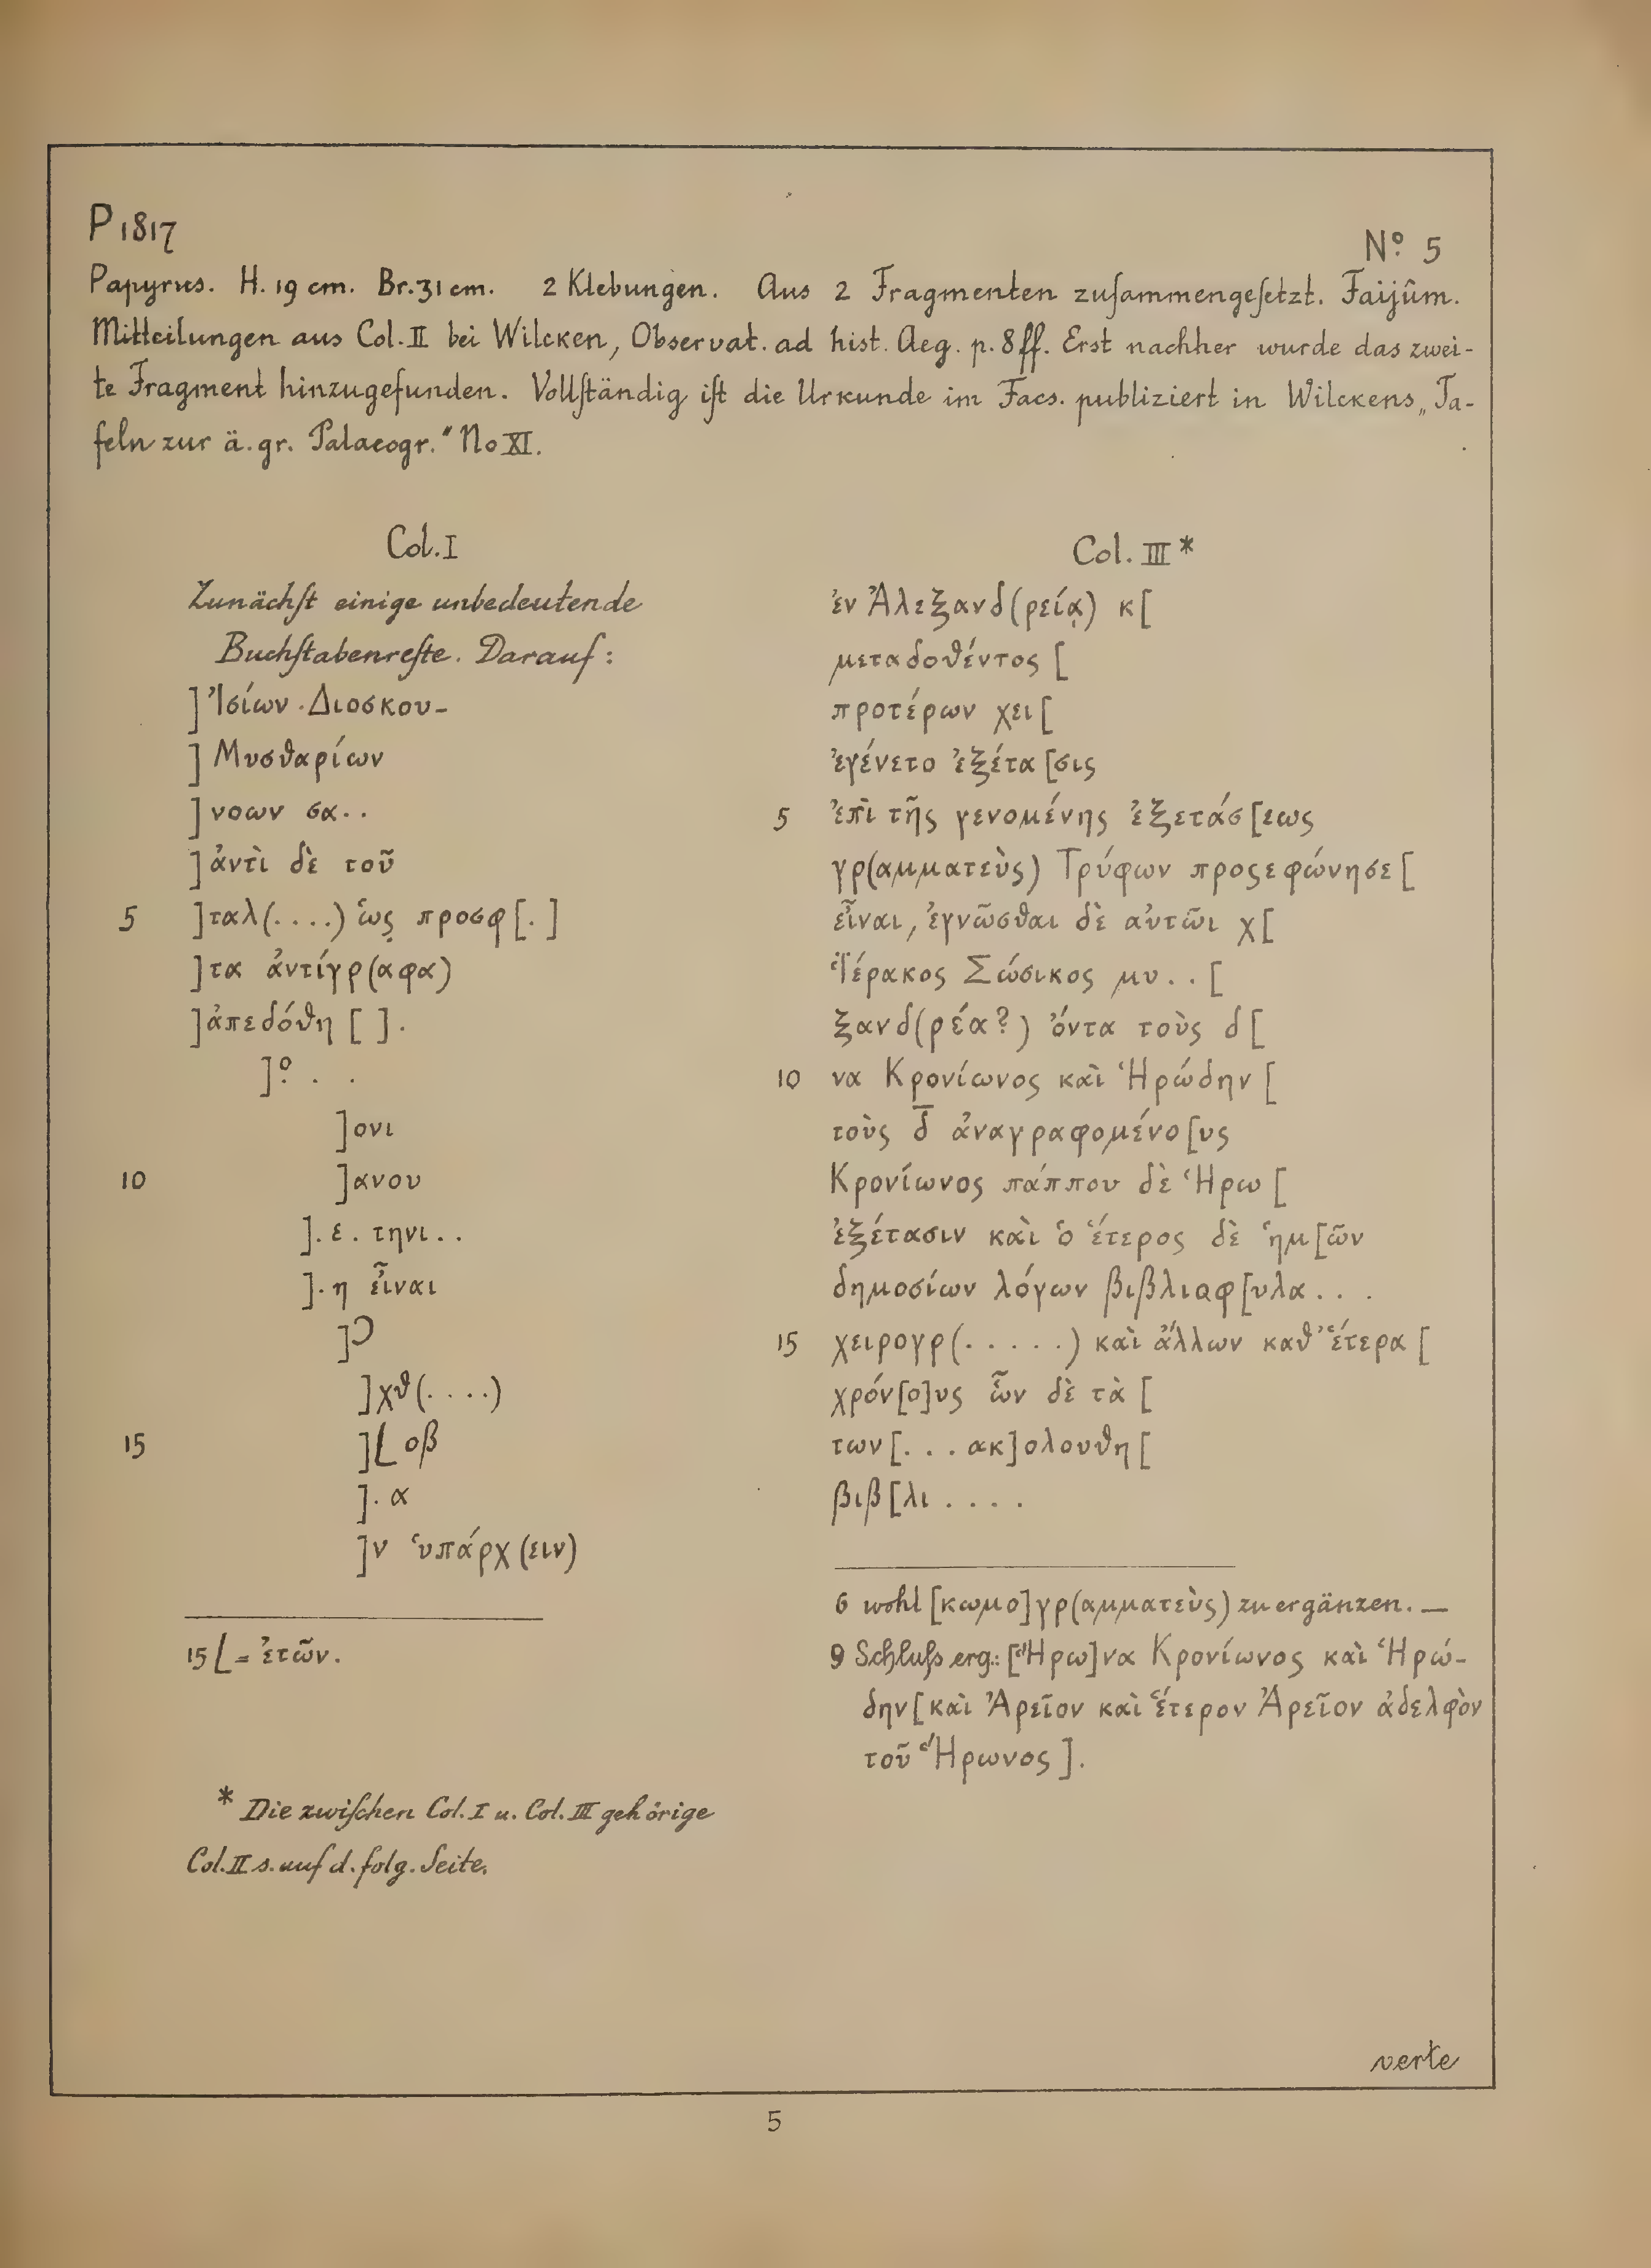 P 1817
Nº 5
Papyrus. H. 19 cm. Br. 31 cm. 2 Klebungen. Aus 2 Fragmenten zuſammengeſetzt. Faijûm.
Mitteilungen aus Col. II bei Wilcken, Observat. ad hist. Aeg. p. 8 ff. Erst nachher wurde das zwei-
te Fragment hinzugefunden. Vollſtändig iſt die Urkunde im Facs. publiziert in Wilckens „Ta-
feln zur ä. gr. Palaeogr." No XI.
Col. I
Zunächſt einige unbedeutende
Buchſtabenreſte. Darauf:
] Ἰσίων · Διοσκου-
] Μυσθαρίων
] νοων σα . .
] ἀντὶ δὲ τοῦ
5 ] ταλ(. . . .) ὥς προσφ[.]
] τα ἀντίγρ(αφα)
] ἀπεδόθη [ ] .
]ο . . .
] ονι
10 ] ανου
] . ε . τηνι . .
] . η εἶναι
] Ɔ
] χθ(. . . .)
15 ] L οβ
] . α
] ν ὑπάρχ(ειν)
15 L = ἐτῶν.
* Die zwiſchen Col. I u. Col. III gehörige
Col. II s. auf d. folg. Seite.
Col. III *
ἐν Ἀλεξανδ(ρείᾳ) κ[
μεταδοθέντος [
προτέρων χει[
ἐγένετο ἐξέτα[σις
5 ἐπὶ τῆς γενομένης ἐξετάσ[εως
γρ(αμματεὺς) Τρύφων προςεφώνησε[
εἶναι, ἐγνῶσθαι δὲ αὐτῶι χ[
Ἱέρακος Σώσικος μυ . . [
ξανδ(ρέα?) ὄντα τοὺς δ[
10 να Κρονίωνος καὶ Ἡρώδην [
τοὺς δ̅ ἀναγραφομένο[υς
Κρονίωνος πάππου δὲ Ἡρω [
ἐξέτασιν καὶ ὁ ἕτερος δὲ ἡμ[ῶν
δημοσίων λόγων βιβλιοφ[υλα . . .
15 χειρογρ(. . . . .) καὶ ἄλλων καθ' ἕτερα [
χρόν[ο]υς ὧν δὲ τὰ [
των[. . . ακ]ολουθη[
βιβ[λι . . . .
6 wohl [κωμο]γρ(αμματεὺς) zu ergänzen. —
9 Schluſs erg.: [Ἥρω]να Κρονίωνος καὶ Ἡρώ-
δην[καὶ Ἀρεῖον καὶ ἕτερον Ἀρεῖον ἀδελφὸν
τοῦ Ἥρωνος].
verte
5